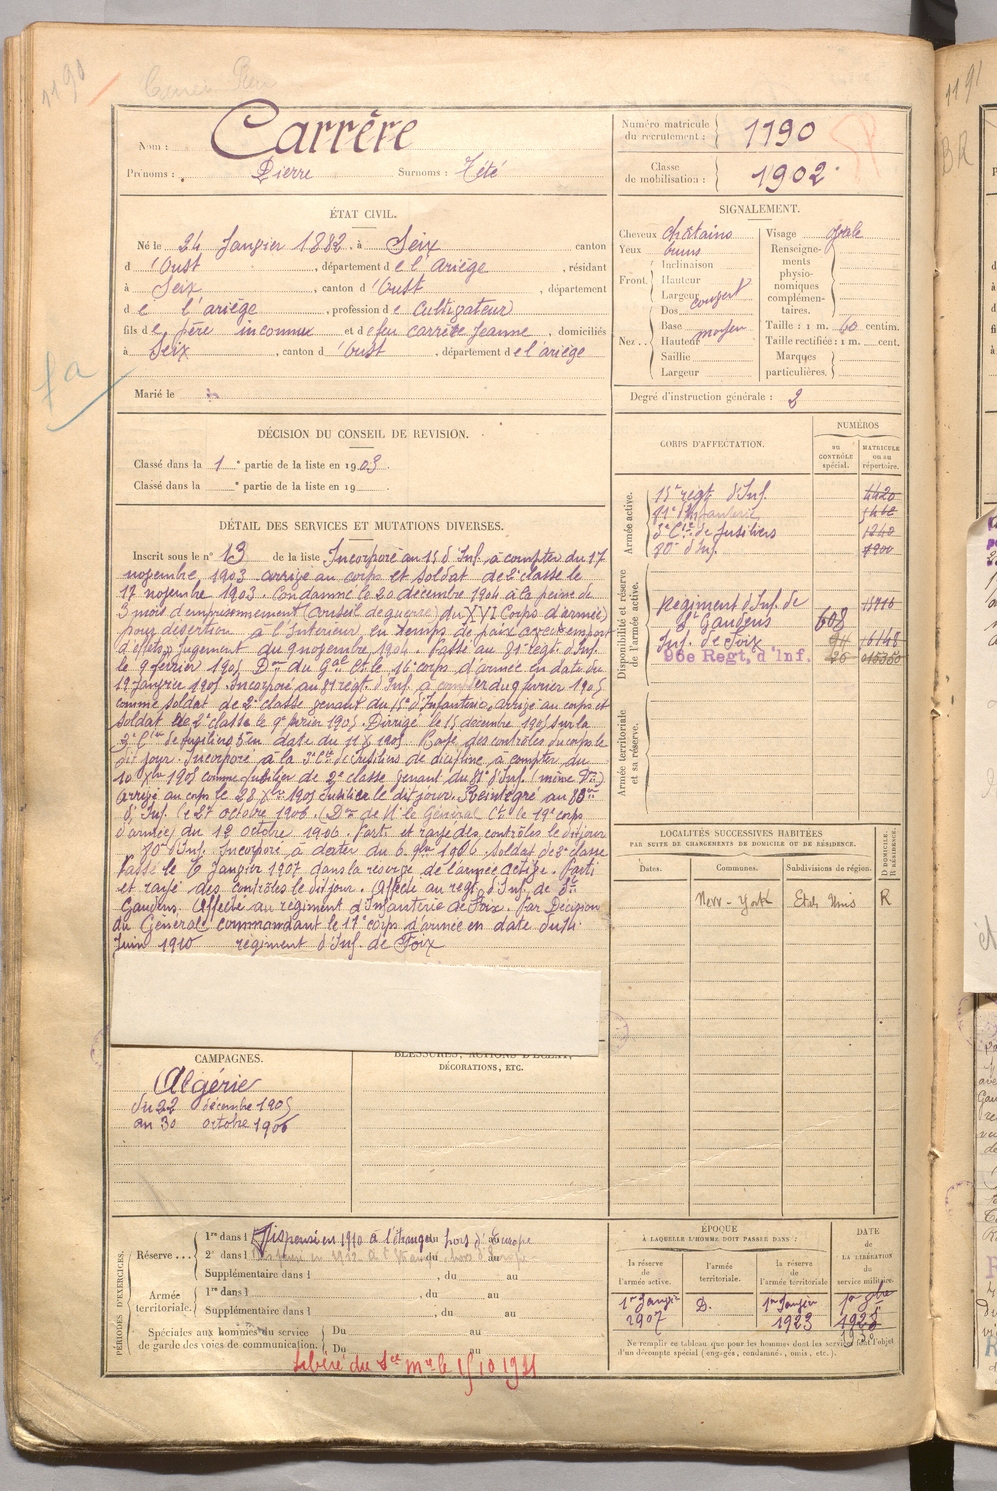 1190
Nom : Carrère
Prénoms : Pierre Surnoms : Tété
Numéro matricule du recrutement : 1190
Classe de mobilisation : 1902
ÉTAT CIVIL.
Né le 24 Janvier 1882, à Seix canton
d'Oust, département de l'ariège, résidant
à Seix, canton d'Oust, département
de l'ariège, profession de Cultivateur
fils de père inconnu et de feu carrère Jeanne, domiciliés
à Seix, canton d'Oust, département de l'ariège
Marié le
SIGNALEMENT.
Cheveux chatains
Yeux bruns
Front Inclinaison
Hauteur
Largeur couvert
Nez Dos
Base moyen
Hauteur
Saillie
Largeur
Visage ovale
Renseignements physionomiques complémentaires.
Taille : 1 m. 60 centim.
Taille rectifiée : 1 m. cent.
Marques particulières.
Degré d'instruction générale : 2
DÉCISION DU CONSEIL DE REVISION.
Classé dans la 1e partie de la liste en 1903
Classé dans la e partie de la liste en 19
CORPS D'AFFECTATION.
NUMÉROS
au CONTRÔLE spécial.
MATRICULE ou au répertoire.
Armée active.
15e régt d'Inf. 4420
81e d'Infanterie
3e Cie de fusiliers 1240
80e d'Inf. 7200
Disponibilité et réserve de l'armée active.
Régiment d'Inf. de
St Gaudens 608
Inf. de Foix
96e Regt, d'Inf.
Armée territoriale et sa réserve.
DÉTAIL DES SERVICES ET MUTATIONS DIVERSES.
Inscrit sous le n° 13 de la liste Incorporé au 15e d'Inf. à compter du 17
novembre 1903 arrivé au corps et soldat de 2e classe le
17 novembre 1903. Condamné le 20 décembre 1904 à la peine de
3 mois d'emprisonnement (Conseil de guerre) du XVI Corps d'armée)
pour désertion à l'Intérieur en temps de paix avec emport
d'effets Jugement du 9 novembre 1904. Passé au 81e régt. d'Inf.
le 9 février 1905 Don du Gal Ct le 16e corps d'armée en date du
19 Janvier 1905. Incorporé au 81e régt. d'Inf. à compter du 9 février 1905
comme soldat de 2e classe venant du 15e d'Infanterie, arrivé au corps et
soldat de 2e classe le 9 février 1905. Dirigé le 15 décembre 1905 sur la
3e Cie de fusiliers en date du 11 X 1905 Rayé des contrôles du corps le
dit jour. Incorporé à la 3e Cie de fusiliers de discipline à compter du
10 Xbre 1905 comme fusilier de 2e classe venant du 81e d'Inf. (même Don)
arrivé au corps le 28 Xbre 1905 fusilier le dit jour. Réintégré au 80me
d'Inf. le 27 octobre 1906. (Don de M le Général Ct le 19e corps
d'armée) du 12 octobre 1906. Parti et rayé des contrôles le dit jour
80e d'Inf. Incorporé à dater du 6 9bre 1906 soldat de 2e classe
Passé le 6 Janvier 1907 dans la réserve de l'armée active. Parti
et rayé des contrôles le dit jour. Affecté au régt d'Inf. de St
Gaudens. Affecté au régiment d'Infanterie de Foix. Par Décision
du Général commandant le 17e corps d'armée en date du
Juin 1910 régiment d'Inf. de Foix
LOCALITÉS SUCCESSIVES HABITÉES
PAR SUITE DE CHANGEMENTS DE DOMICILE OU DE RÉSIDENCE.
Dates. Communes. Subdivisions de région. D DOMICILE. R RÉSIDENCE.
New-York Etats Unis R
CAMPAGNES.
Algérie
du 22 décembre 1905
au 30 octobre 1906
BLESSURES, ACTIONS D'ÉCLAT,
DÉCORATIONS, ETC.
PÉRIODES D'EXERCICES.
Réserve 1re dans l Dispensé en 1910 à l'étranger hors d'Europe
2e dans l Dispensé en 1912 à l'étranger hors d'Europe
Supplémentaire dans l , du au
Armée territoriale. 1re dans l , du au
Supplémentaire dans l , du au
Spéciales aux hommes du service
de garde des voies de communication. Du au
Du au
Libéré du Sce Mre le 15 10 1931
ÉPOQUE
À LAQUELLE L'HOMME DOIT PASSER DANS :
la réserve de l'armée active. l'armée territoriale. la réserve de l'armée territoriale
DATE de LA LIBÉRATION du service militaire.
1er Janvier 1907 D. 1er Janvier 1923 1er 9bre 1928
1930
Ne remplir ce tableau que pour les hommes dont les services font l'objet
d'un décompte spécial (engagés, condamnés, omis, etc.).